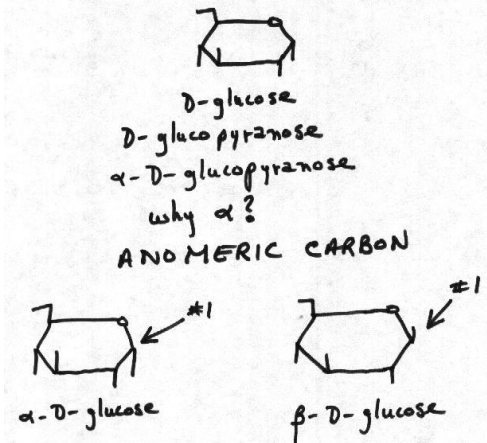 D-glucose
D-glucopyranose
α-D-glucopyranose
why α?
ANOMERIC CARBON
#1
#1
α-D-glucose
β-D-glucose